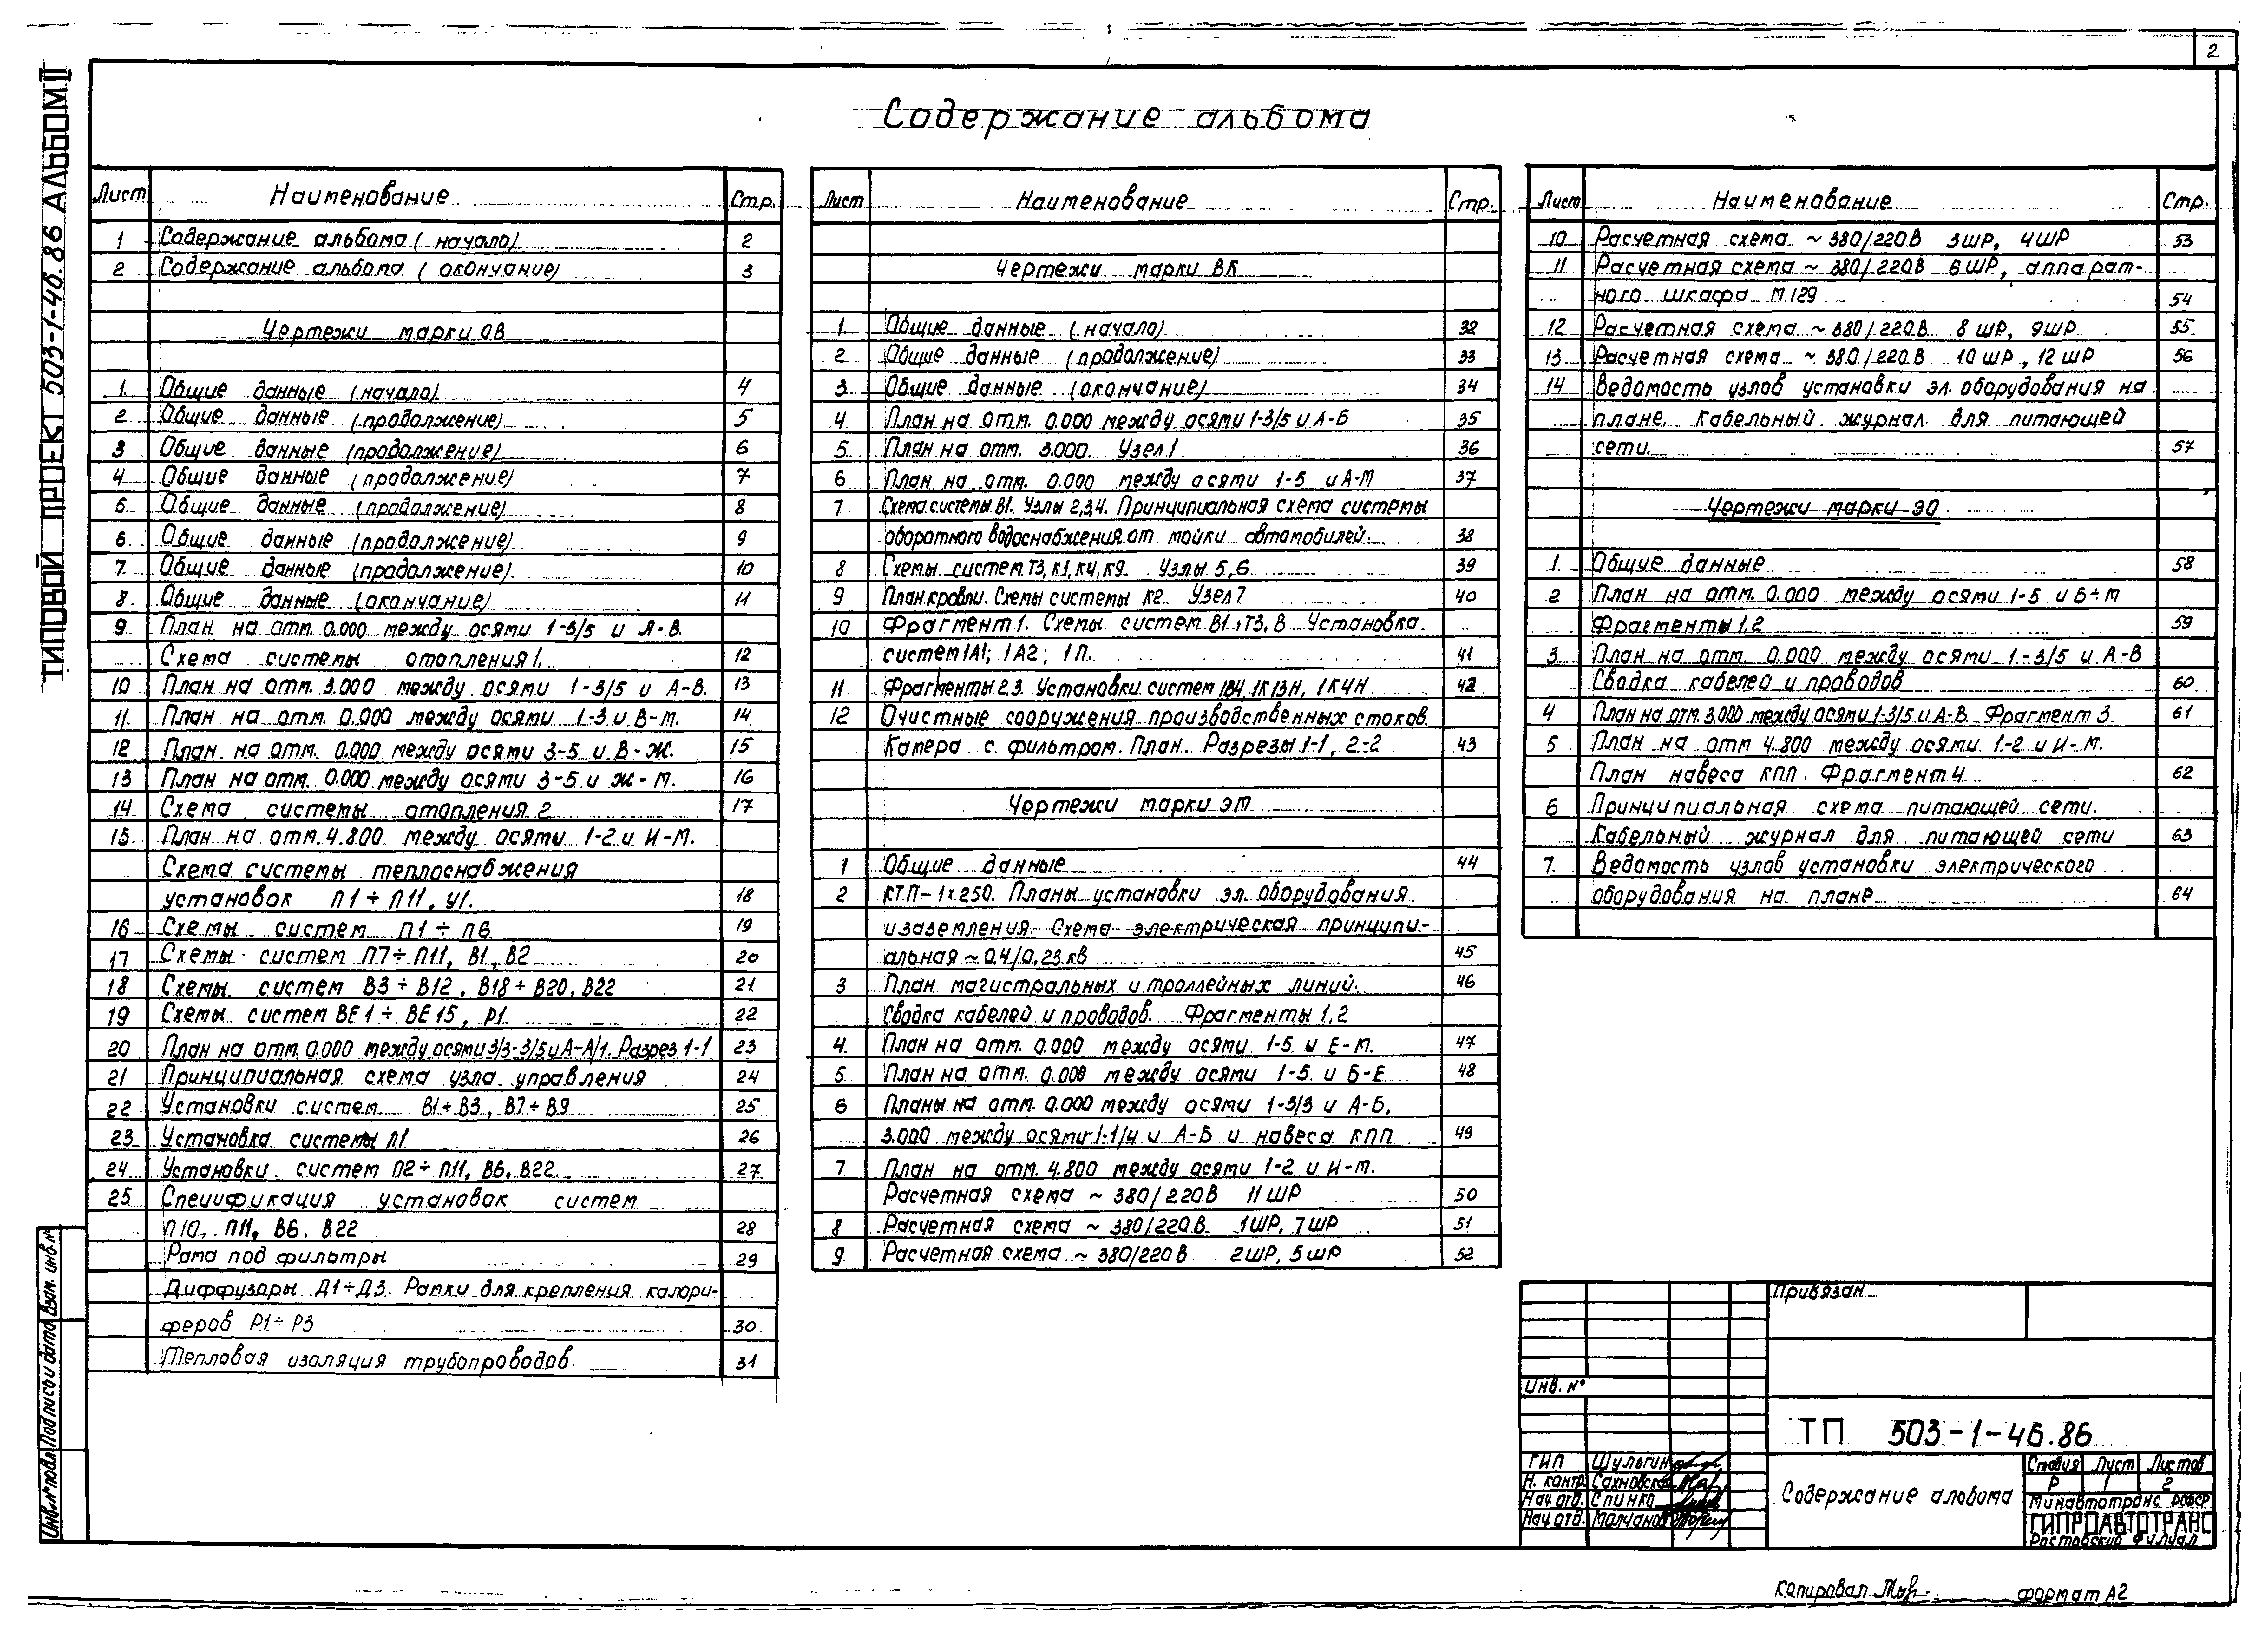 2
ТИПОВОЙ ПРОЕКТ 503-1-46.86 АЛЬБОМ II
Содержание альбома
Лист Наименование Стр.
1 Содержание альбома (начало) 2
2 Содержание альбома (окончание) 3
Чертежи марки ОВ
1 Общие данные (начало) 4
2 Общие данные (продолжение) 5
3 Общие данные (продолжение) 6
4 Общие данные (продолжение) 7
5 Общие данные (продолжение) 8
6 Общие данные (продолжение) 9
7 Общие данные (продолжение) 10
8 Общие данные (окончание) 11
9 План на отм. 0.000 между осями 1-3/5 и А-В.
Схема системы отопления 1. 12
10 План на отм. 3.000 между осями 1-3/5 и А-В. 13
11 План на отм. 0.000 между осями 1-3 и В-М. 14
12 План на отм. 0.000 между осями 3-5 и В-Ж. 15
13 План на отм. 0.000 между осями 3-5 и Ж-М. 16
14 Схема системы отопления 2 17
15 План на отм. 4.800 между осями 1-2 и И-М.
Схема системы теплоснабжения
установок П1÷П11, У1. 18
16 Схемы систем П1÷П6 19
17 Схемы систем П7÷П11, В1, В2 20
18 Схемы систем В3÷В12, В18÷В20, В22 21
19 Схемы систем ВЕ1÷ВЕ15, Р1 22
20 План на отм. 0.000 между осями 3/3-3/5 и А-А/1. Разрез 1-1 23
21 Принципиальная схема узла управления 24
22 Установки систем В1÷В3, В7÷В9 25
23 Установка системы П1 26
24 Установки систем П2÷П11, В6, В22 27
25 Спецификация установок систем
П10, П11, В6, В22 28
Рама под фильтры 29
Диффузоры Д1÷Д3. Рамки для крепления калори-
феров Р1÷Р3 30
Тепловая изоляция трубопроводов. 31
Лист Наименование Стр.
Чертежи марки ВК
1 Общие данные (начало) 32
2 Общие данные (продолжение) 33
3 Общие данные (окончание) 34
4 План на отм. 0.000 между осями 1-3/5 и А-Б 35
5 План на отм. 3.000 Узел 1 36
6 План на отм. 0.000 между осями 1-5 и А-М 37
7 Схема системы В1. Узлы 2,3,4. Принципиальная схема системы
оборотного водоснабжения от мойки автомобилей 38
8 Схемы систем Т3, К1, К4, К9. Узлы 5,6 39
9 План кровли. Схемы системы К2. Узел 7 40
10 Фрагмент 1. Схемы систем В1, Т3, В. Установка
систем 1А1; 1А2; 1П. 41
11 Фрагменты 2,3. Установки систем 1В4, 1К13Н, 1К4Н 42
12 Очистные сооружения производственных стоков.
Камера с фильтром. План. Разрезы 1-1, 2-2 43
Чертежи марки ЭМ
1 Общие данные 44
2 КТП-1х250. Планы установки эл. оборудования
и заземления. Схема электрическая принципи-
альная ~0,4/0,23 кв 45
3 План магистральных и троллейных линий. 46
Сводка кабелей и проводов. Фрагменты 1,2
4 План на отм. 0.000 между осями 1-5 и Е-М. 47
5 План на отм. 0.000 между осями 1-5 и Б-Е 48
6 Планы на отм. 0.000 между осями 1-3/3 и А-Б,
3.000 между осями 1-1/4 и А-Б и навеса КПП 49
7 План на отм. 4.800 между осями 1-2 и И-М.
Расчетная схема ~380/220В 11ШР 50
8 Расчетная схема ~380/220В 1ШР, 7ШР 51
9 Расчетная схема ~380/220В 2ШР, 5ШР 52
Лист Наименование Стр.
10 Расчетная схема ~380/220В 3ШР, 4ШР 53
11 Расчетная схема ~380/220В 6ШР, аппарат-
ного шкафа М.129 54
12 Расчетная схема ~380/220В 8ШР, 9ШР 55
13 Расчетная схема ~380/220В 10ШР, 12ШР 56
14 Ведомость узлов установки эл. оборудования на
плане. Кабельный журнал для питающей
сети. 57
Чертежи марки ЭО
1 Общие данные 58
2 План на отм. 0.000 между осями 1-5 и Б÷М
Фрагменты 1,2 59
3 План на отм. 0.000 между осями 1-3/5 и А-В
Сводка кабелей и проводов 60
4 План на отм. 3.000 между осями 1-3/5 и А-В. Фрагмент 3. 61
5 План на отм 4.800 между осями 1-2 и И-М.
План навеса КПП. Фрагмент 4. 62
6 Принципиальная схема питающей сети.
Кабельный журнал для питающей сети 63
7 Ведомость узлов установки электрического
оборудования на плане 64
Привязан
Инв. №
ТП 503-1-46.86
ГИП Шульгин
Н. контр. Сахновская
Нач. отд. Спинко
Нач. отд. Молчанов
Содержание альбома
Стадия Лист Листов
Р 1 2
Минавтотранс РСФСР
ГИПРОАВТОТРАНС
Ростовский филиал
Инв. № подл. Подпись и дата Взам. инв. №
Копировал
формат А2